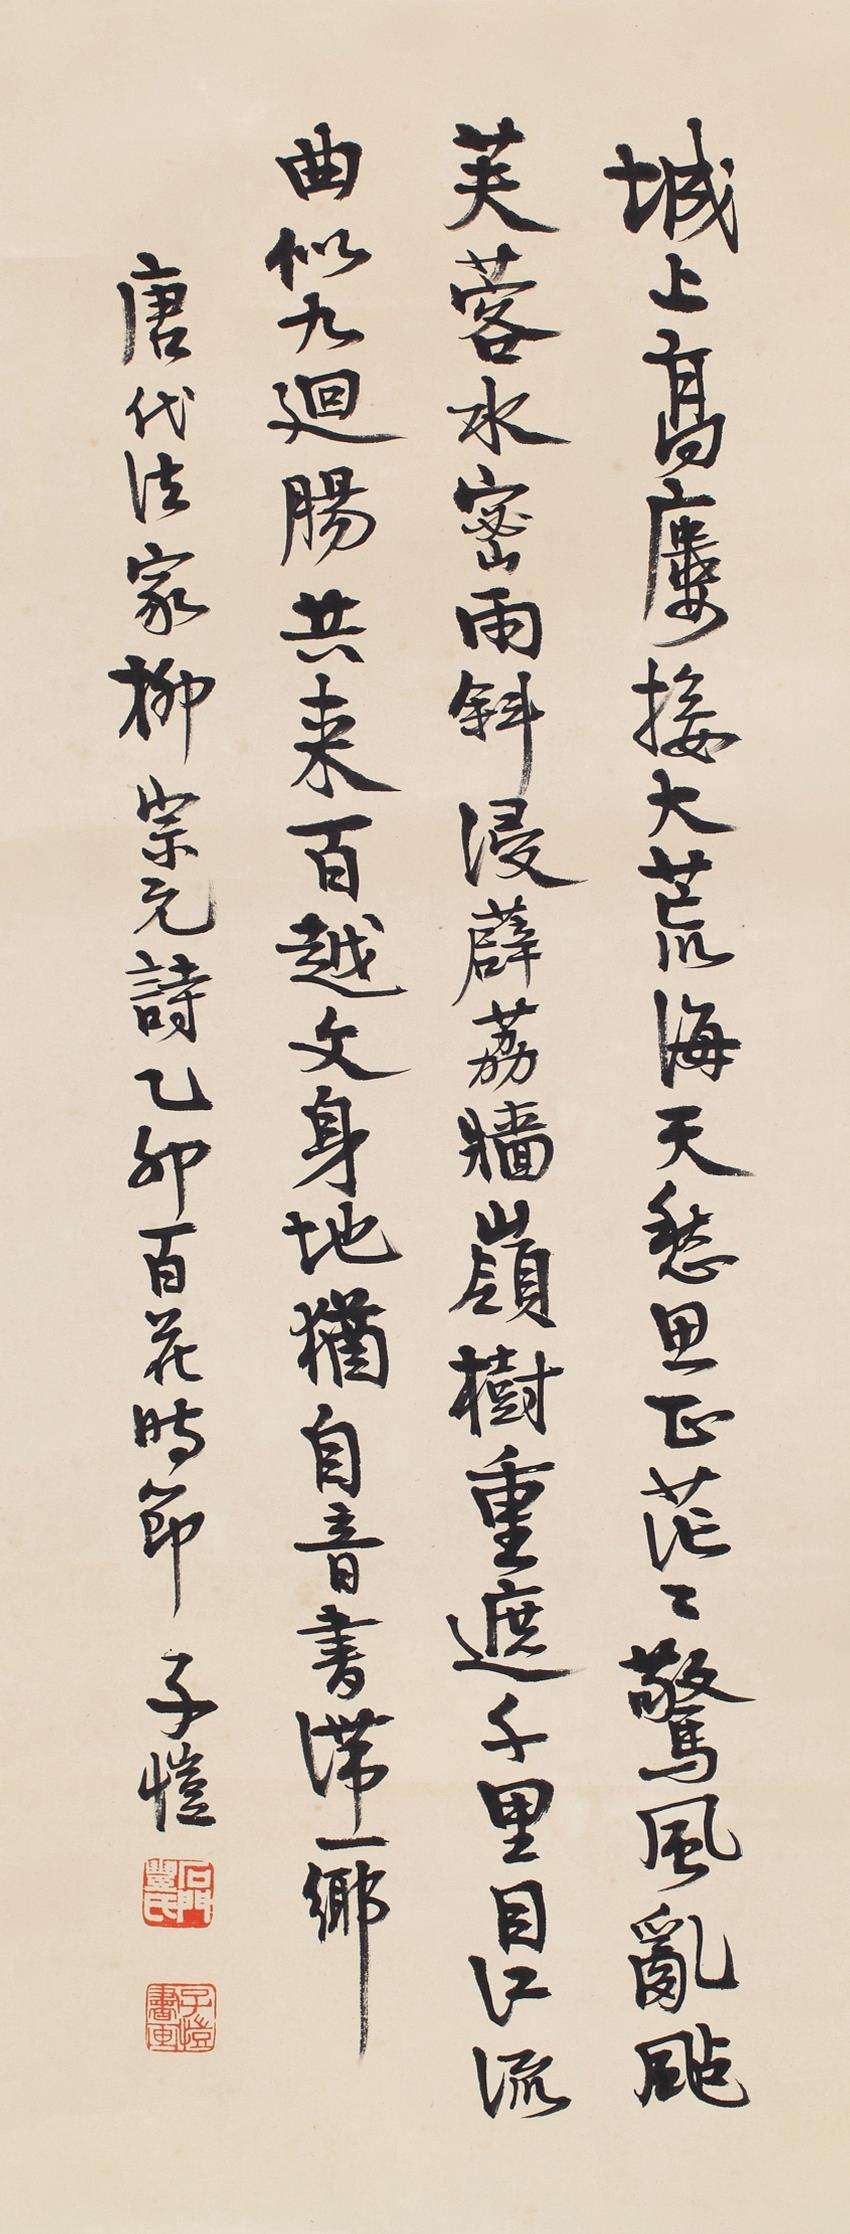 城上高廔接大荒海天愁思正茫〻驚風亂颭
芙蓉水密雨斜浸薜荔牆嶺樹重遮千里目江流
曲似九廻腸共来百越文身地猶自音書滯一鄉
唐代法家柳宗元詩乙卯百花時節 子愷
石門豐氏
子愷書画